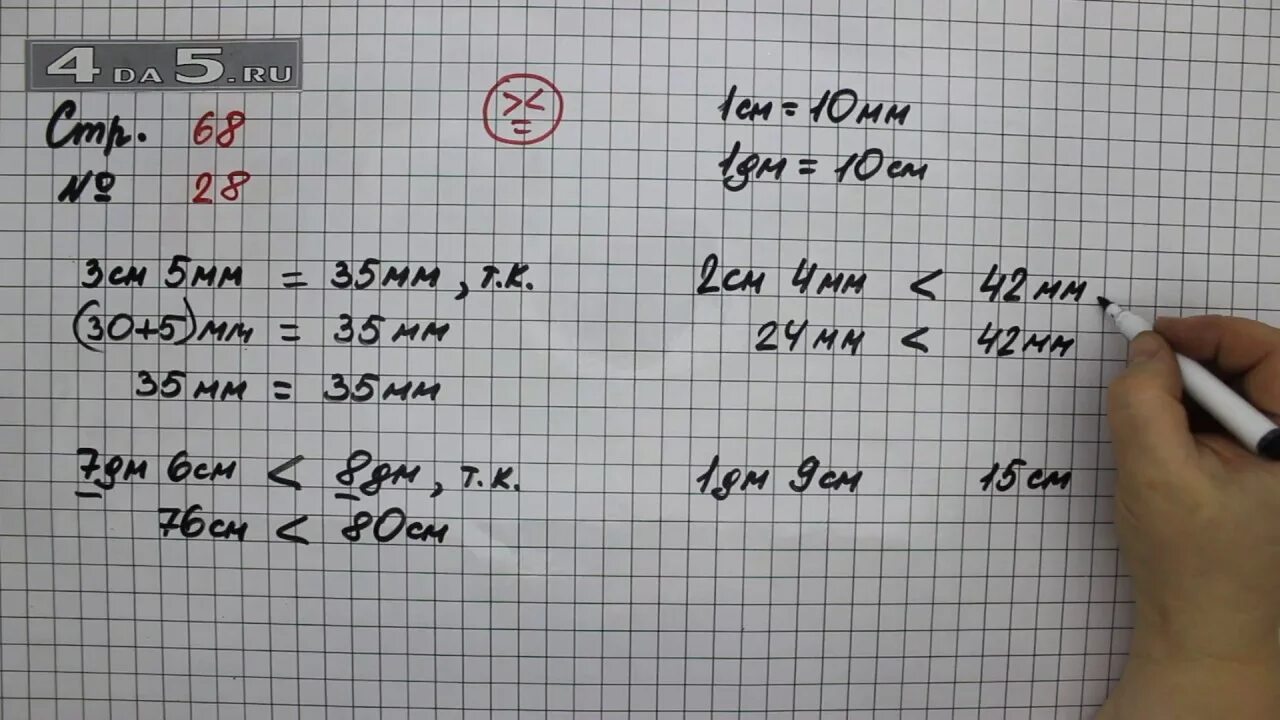 4DA5.RU
Стр. 68
№ 28
><
=
1см = 10мм
1дм = 10см
3см 5мм = 35мм, т.к.
(30+5)мм = 35мм
35мм = 35мм
2см 4мм < 42мм
24мм < 42мм
7дм 6см < 8дм, т.к.
76см < 80см
1дм 9см 15см